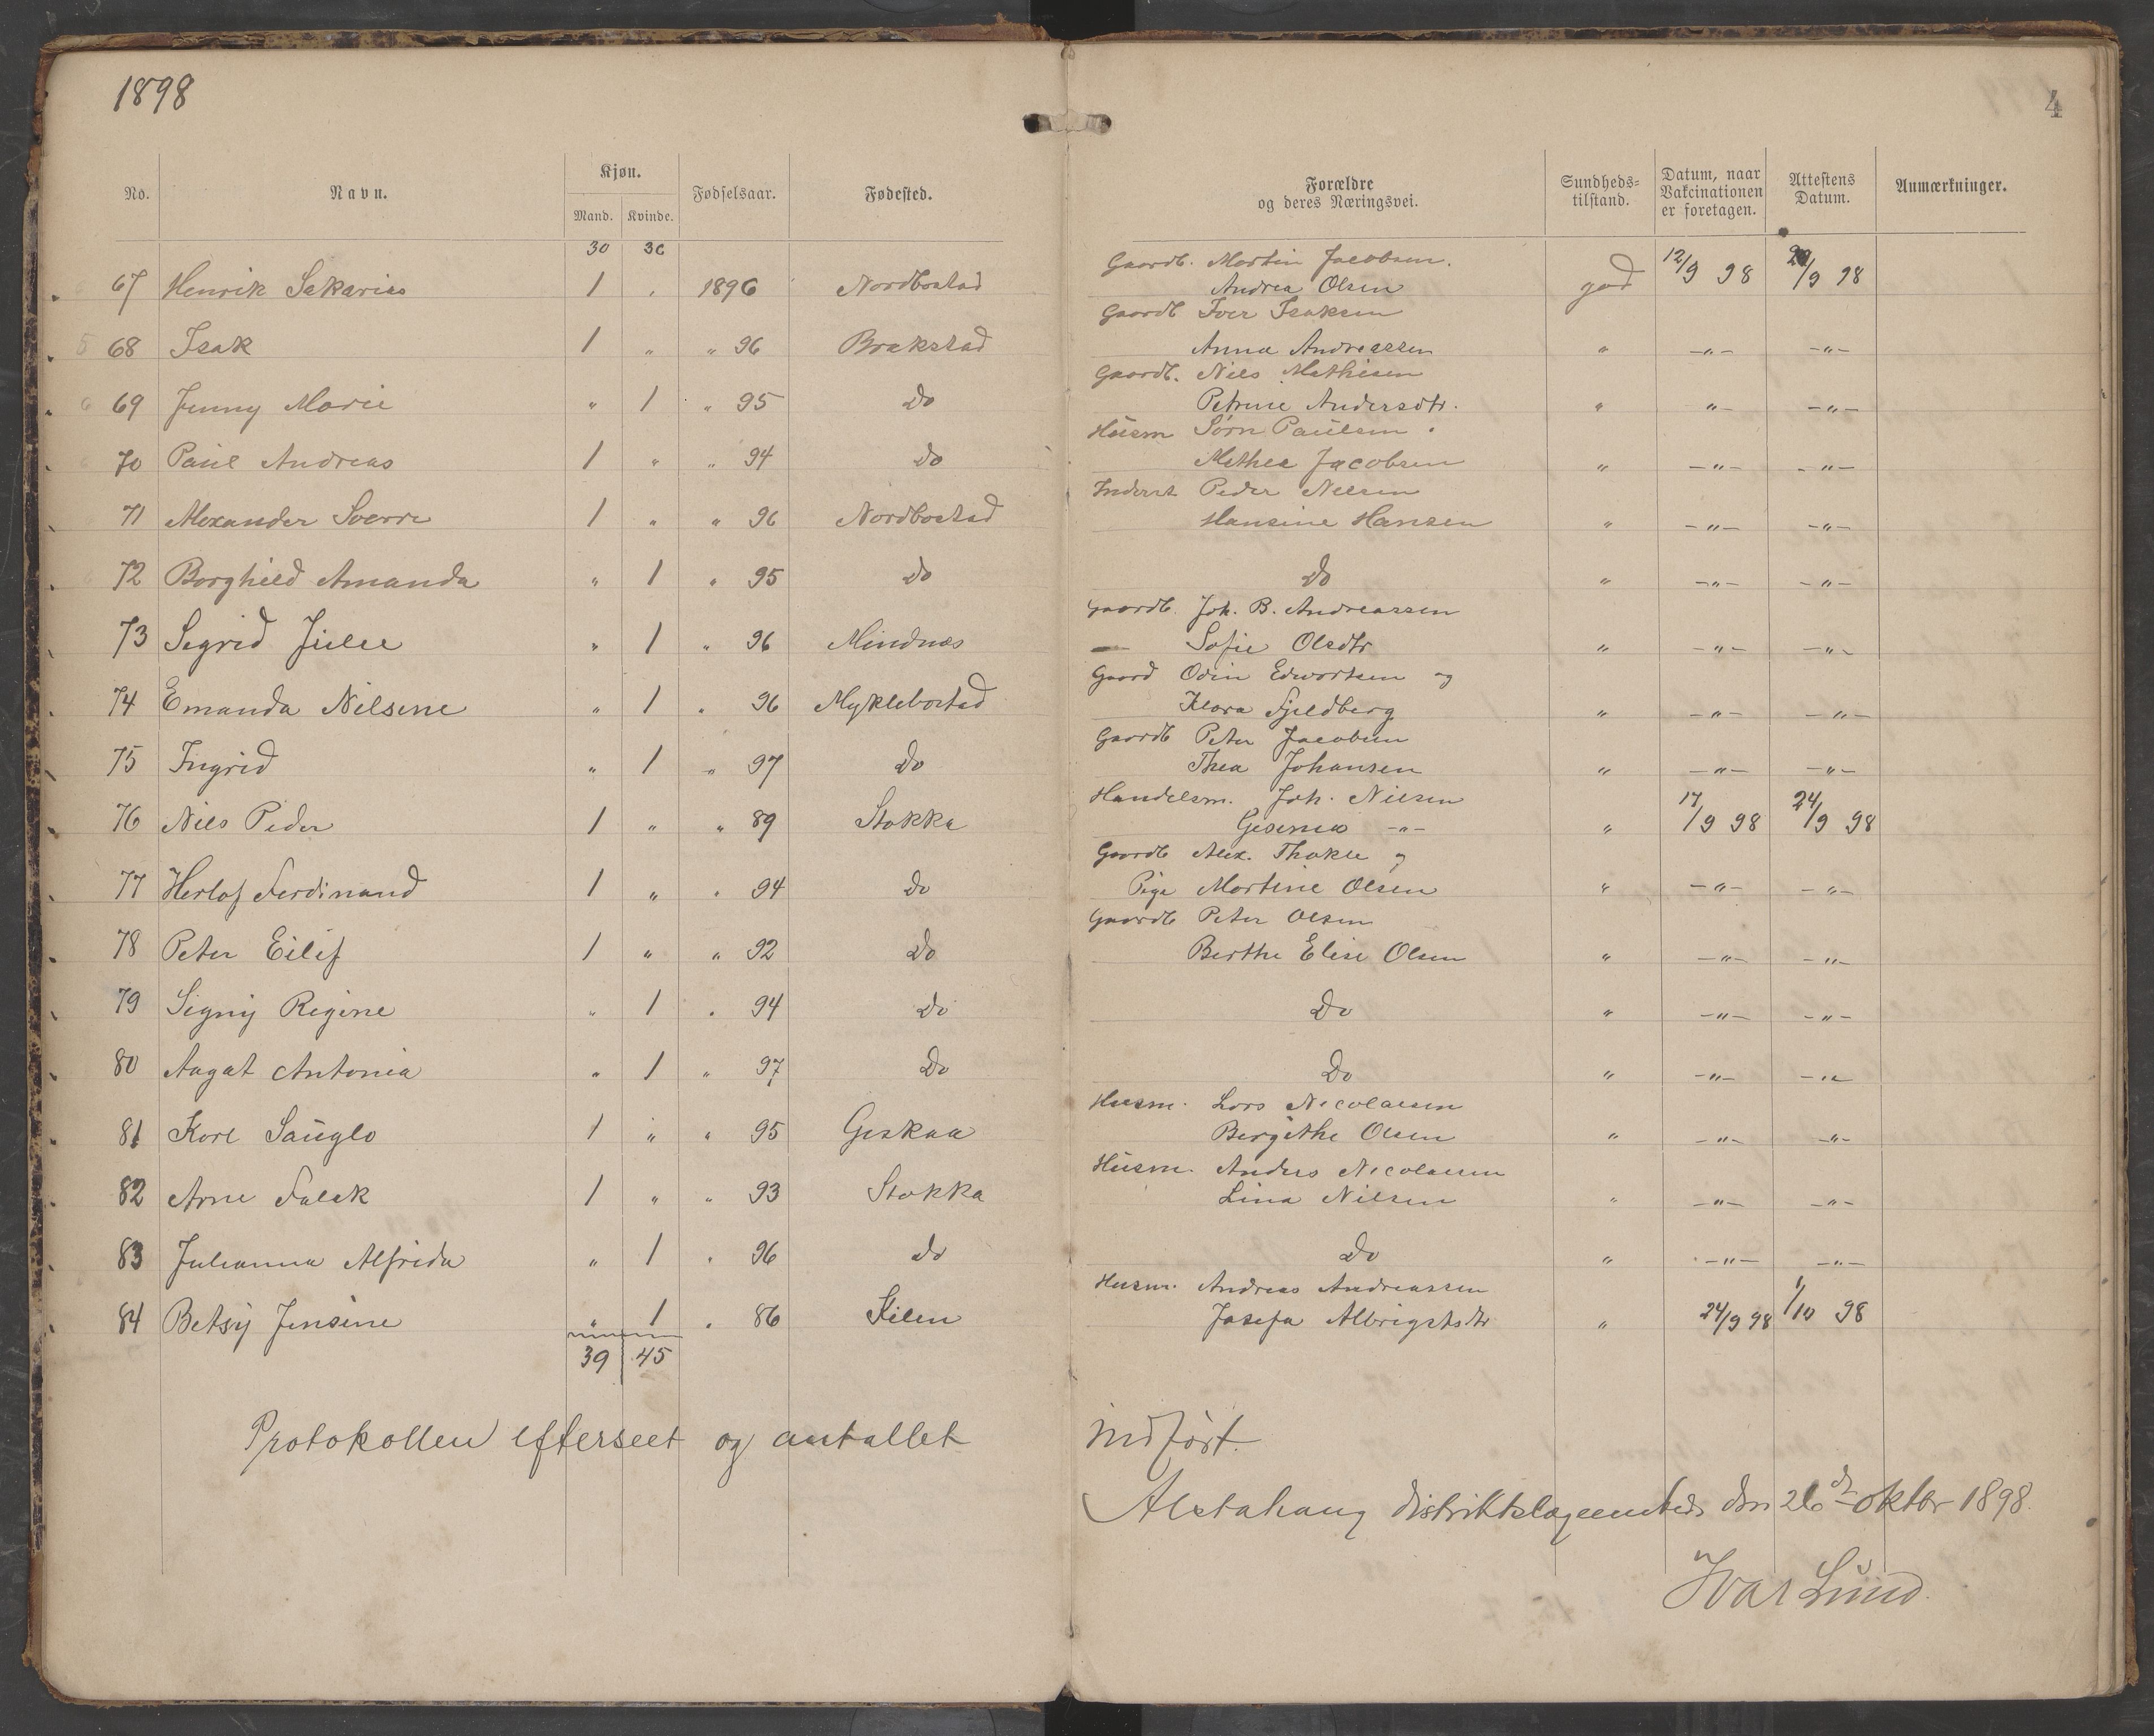 1898
4
No.
Navn.
Kjøn.
Mand. Kvinde.
Fødselsaar.
Fødested.
Forældre
og deres Næringsvei.
Sundheds-
tilstand.
Datum, naar
Vakcinationen
er foretagen.
Attestens
Datum.
Anmærkninger.
30 36
Gaardb. Martin Jacobsen.
67 Henrik Sakarias 1 " 1896 Nordbostad Andrea Olsen god 12/9 98 20/9 98
Gaardb Iver Isaksen
68 Isak 1 " " 96 Brakstad Anna Andreassen " -"- -"-
Gaardb. Nils Mathisen
69 Jenny Marie " 1 " 95 Do Petrine Andersdtr. " "- -"-
Husm Sørn Paulsen
70 Paul Andreas 1 " " 94 Do Mathea Jacobsen " -"- -"-
Inderst Peder Nilsen
71 Alexander Sverre 1 " " 96 Nordbostad Hansine Hansen " -"- -"-
72 Borghild Amanda " 1 " 95 Do Do " -"- -"-
Gaardb. Joh. B. Andreassen
73 Sigrid Julie " 1 " 96 Mindnæs Sofie Olsdtr " -"- -"-
Gaard Odin Edvartsen og
74 Emanda Nilsine " 1 " 96 Myklebostad Klara Fjeldberg " -"- -"-
Gaardb Peter Jacobsen
75 Ingrid " 1 " 97 Do Thea Johansen " -"- -"-
Handelsm. Joh. Nilsen
76 Nils Peder 1 " " 89 Stokka Gesine -"- " 17/9 98 24/9 98
Gaardb Alex. Thokle og
77 Herlof Ferdinand 1 " " 94 Do Pige Martine Olsen " -"- -"-
Gaardb Peter Olsen
78 Peter Eilif 1 " " 92 Do Berthe Elise Olsen " -"- -"-
79 Signy Regine " 1 " 94 Do Do " -"- -"-
80 Aagot Antonia " 1 " 97 Do Do " -"- -"-
Husm. Lars Nicolaisen
81 Karl Sauglo 1 " " 95 Geskaa Bergithe Olsen " -"- -"-
Husm. Anders Nicolaisen
82 Arne Falck 1 " " 93 Stokka Lina Nilsen " -"- -"-
83 Julianna Alfrida " 1 " 96 do Do " -"- -"-
Husm. Andreas Andreassen
84 Betsy Jensine " 1 " 86 Kilen Josefa Albrigtsdtr " 24/9 98 1/10 98
39 45
Protokollen efterseet og antallet indført.
Alstahaug distriktslægeembede den 26de oktbr 1898.
Ivar Lund.